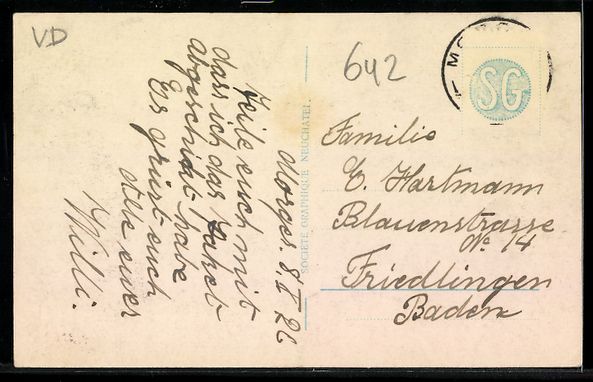 VD
642
SG
Morges. 8. II 26
Teile euch mit
dass ich das Paket
abgeschickt habe
Es grüsst euch
alle euer
Willi.
SOCIÉTÉ GRAPHIQUE NEUCHATEL.
Familie
E. Hartmann
Blauenstrasse
No. 14
Friedlingen
Baden